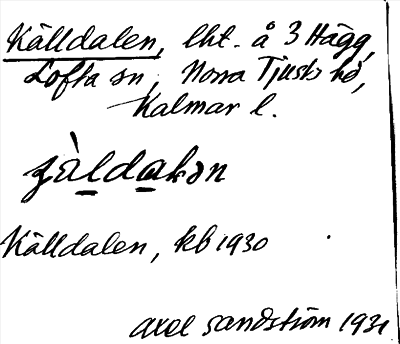 Källdalen, lht. å 3 Hägg,
Lofta sn, Norra Tjusts hd,
Kalmar l.
Källdalen, kb 1930
Axel Sandström 1931